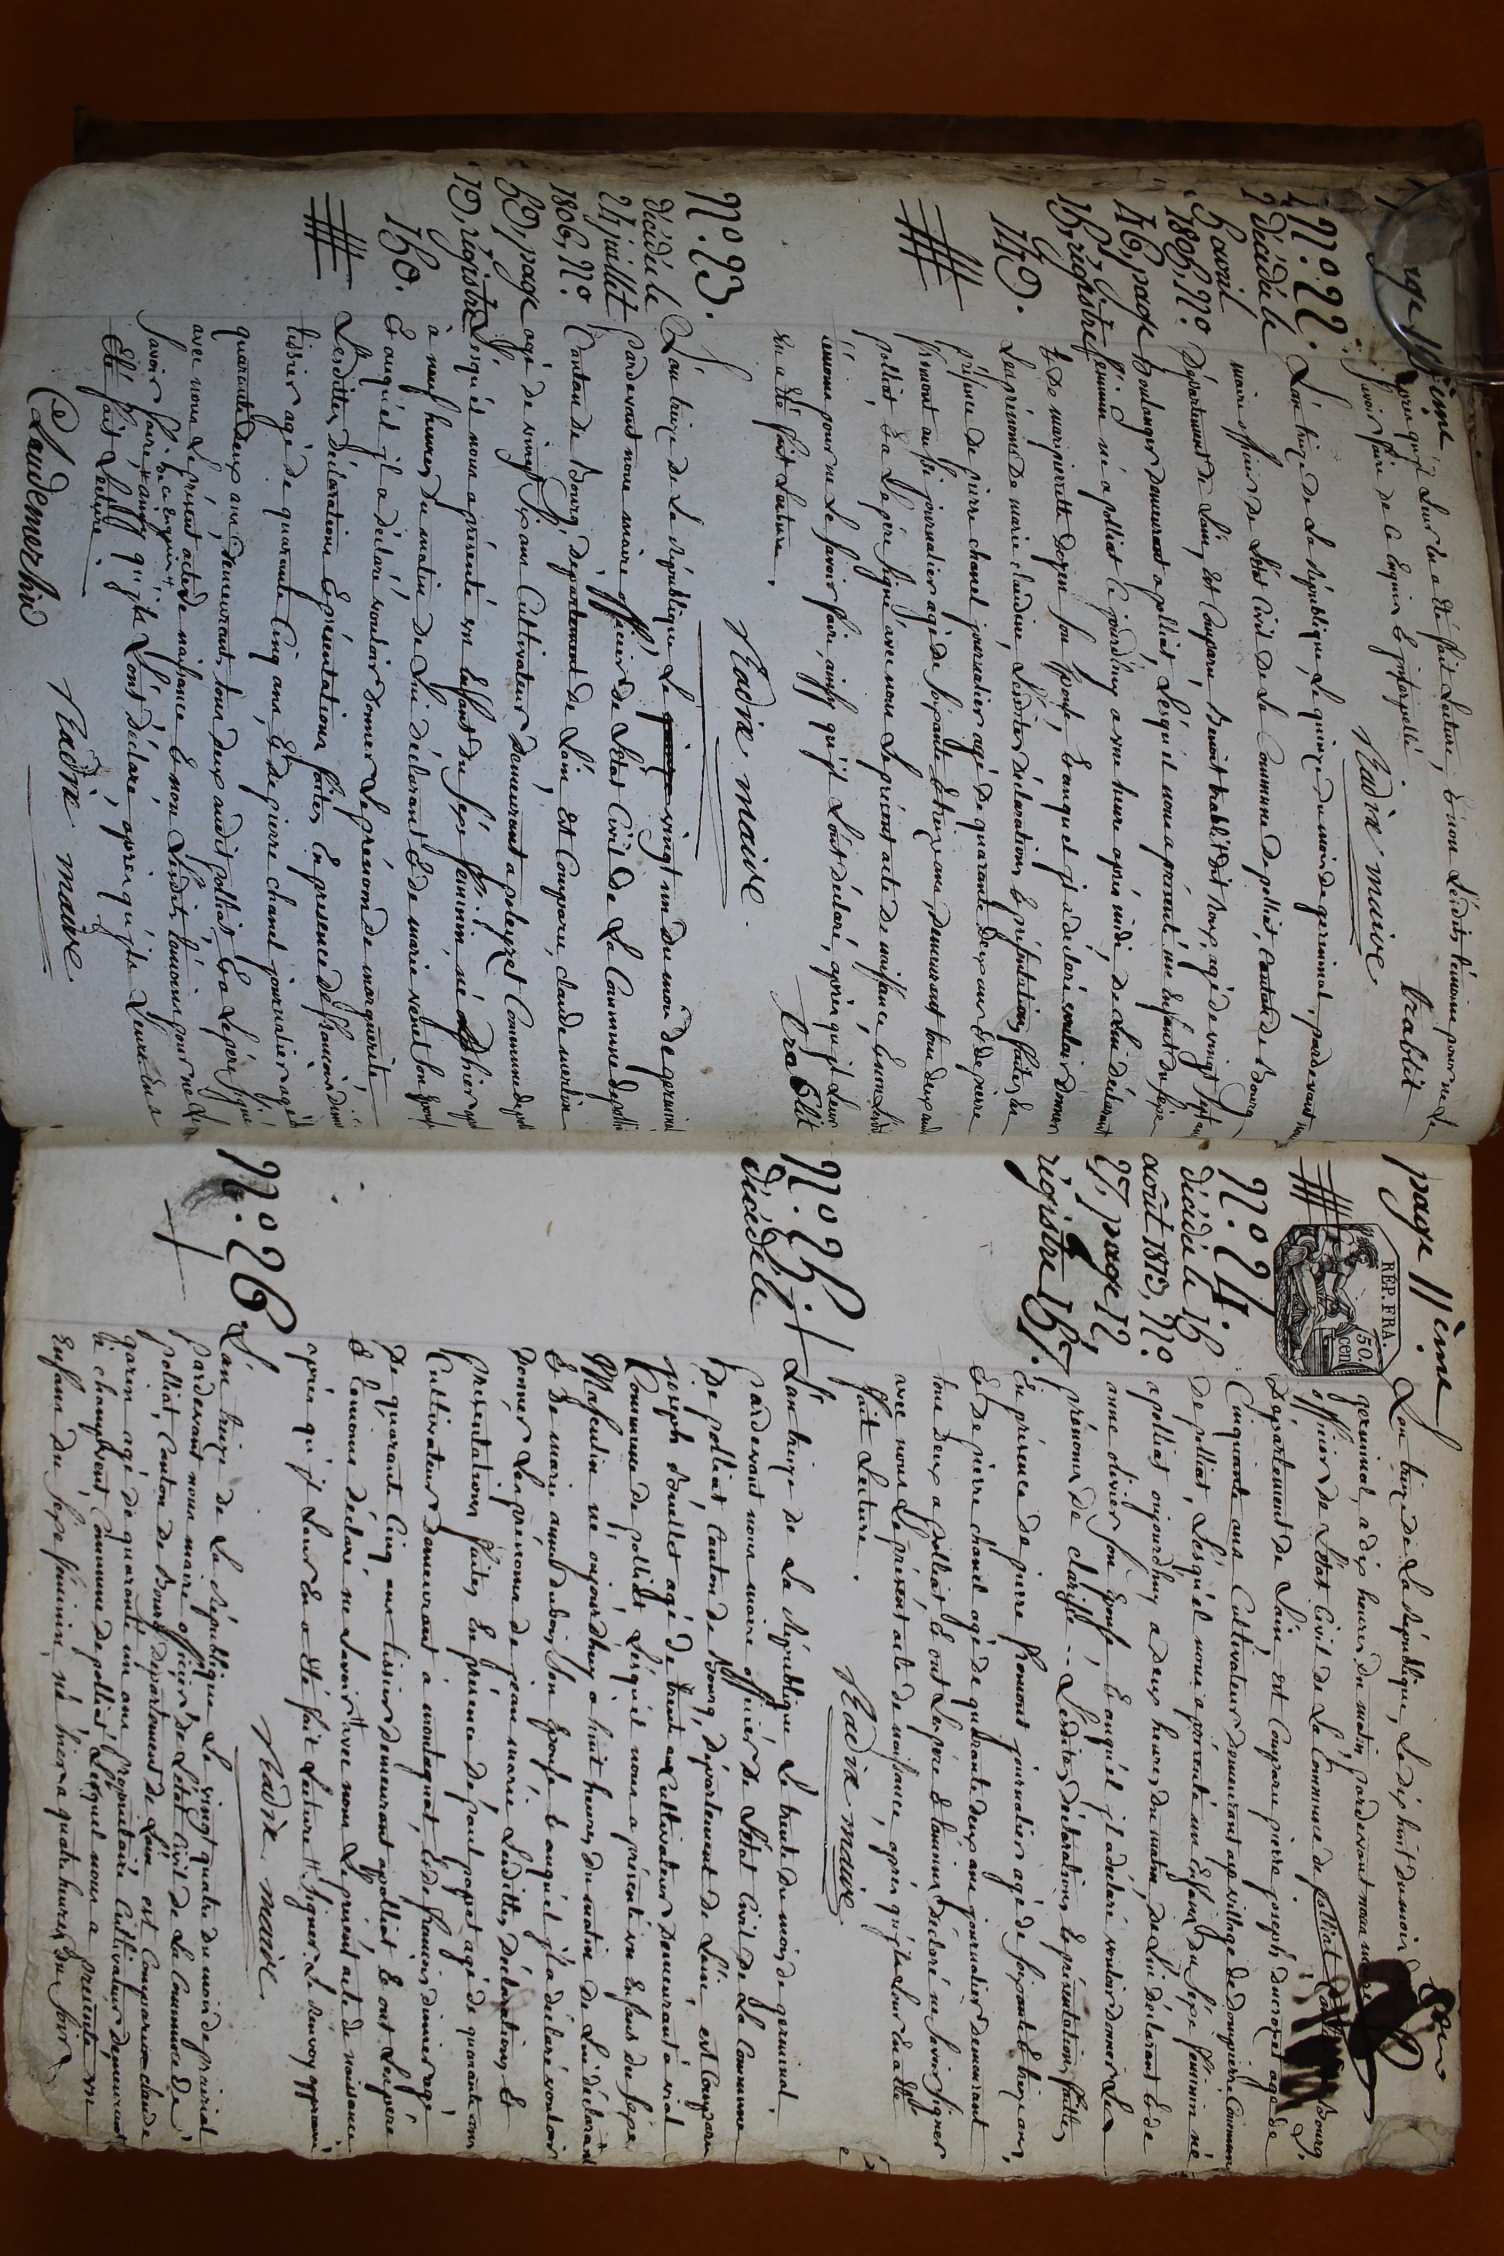 page 10ème
après qu'il leur en a été fait Lecture, & non Lesdits témoins pour ne Le
savoir faire de ce Enquis & interpellé
trablit
Nadix maire
N.° 22.
décédée le
5 avril
1806, N.°
46, page
15, registre
149.
L'an treize de La république, Le quinze du mois de germinal, pardevant nous
maire officier de L'état Civil de La Commune de polliat, Canton de Bourg
Département de L'ain, est Comparu Benoit trablit
boulanger demeurant a polliat, Lesquel nous a présenté un Enfant du sexe
féminin né a polliat ce jourd'huy a une heure après midi, de Lui déclarant
& De marpierrette Doyen son Epouse, & auquel il a déclaré vouloir donner
Les prénoms De marie claudine, Lesdites déclarations & présentations faites En
présence de pierre chanel journalier agé de quarante Deux ans & de pierre
fromont aussi journalier agé de soixante & treize ans, demeurant tous deux audit
polliat, & a Le père signé avec nous Le présent acte de naissance, & non Lesdits
témoins pour ne Le savoir faire, ainsy qu'ils L'ont déclaré, après qu'il Leur
En a été fait Lecture.
trablit
Nadix maire.
N.° 23.
décédée le
24 juillet
1806, N.°
59, page
19, registre
150.
L'an treize de La république Le vingt un du mois de germinal
Pardevant nous maire officier de L'état Civil de La Commune de polliat
Canton de Bourg, Département de L'ain est Comparu, claude merlin
agé de vingt six ans Cultivateur Demeurant a poleyzet Commune de polliat
Lesquel nous a présenté un Enfant du sexe féminin, né hier
a neuf heures du matin de Lui déclarant & de marie son Epouse
& auquel il a déclaré vouloir donner Le prénom de marguerite
Lesdittes Déclarations & présentations faites En présence de françois
tissier agé de quarante Cinq ans, & de pierre chanel journalier agé
quarante deux ans, demeurant, tous deux audit polliat & a Le père signé
avec nous Le présent acte de naissance & non Lesdits témoins pour ne Le
savoir faire, de ce enquis & ainsy qu'ils L'ont déclaré, après qu'il Leur en a
Eté fait Lecture
Claudemerlin Nadix maire
page 11ème
REP. FRA.
50
cen
N.° 24.
décédée le 15
août 1873, N.°
27, page 12
registre 157.
L'an treize de La république, Le dix huit du mois
germinal, a dix heures du matin, pardevant nous maire
officier de L'état Civil de La Commune de polliat Canton de Bourg,
Département de L'ain, est Comparu pierre joseph ducrozet agé de
Cinquante ans Cultivateur demeurant au village de dompierre Commune
de polliat, Lesquel nous a présenté un Enfant du sexe féminin né
a polliat aujourd'huy a Deux heures du matin, de Lui déclarant & de
anne olivier son Epouse, & auquel il a déclaré vouloir donner Le
prénom de clarisse -- Lesdites Déclarations & présentations faittes
En présence de pierre fromont journalier agé de soixante & treize ans,
& de pierre chanel agé de quarante deux ans journalier demeurant
tous Deux a polliat & ont Les père & témoins Déclaré ne savoir signer
avec nous Le présent acte de naissance, après qu'ils Leur En a été
fait Lecture.
Nadix maire
N.° 25.
décédé le
L'an treize de La république Le trente du mois de germinal,
pardevant nous maire officier de L'état Civil de La Commune
De polliat Canton de Bourg, Département de L'ain, est Comparu
joseph douillet agé de trente ans Cultivateur Demeurant a vial
Commune de polliat Lesquel nous a présenté un Enfant du sexe
Masculin né aujourd'huy a huit heures du matin de Lui déclarant
& De marie anne dubois son Epouse & auquel il a déclaré vouloir
Donner Le prénoms de jean marie Lesdittes Déclarations &
Présentations faites En présence de paul payet agé de quarante ans
Cultivateur demeurant a montaquat, & de françois agé
de quarante Cinq ans tissier demeurant a polliat & ont Les père
& témoins déclaré ne savoir avec nous Le présent acte de naissance
après qu'il Leur En a été fait Lecture signer Le renvoy approuvé
Nadix maire.
N.° 26.
L'an treize de La république Le vingt quatre du mois de prairial
pardevant nous maire officier de L'état Civil de La Commune de
polliat, Canton de Bourg Département de L'ain est Comparu claude
garin agé de quarante un ans propriétaire Cultivateur demeurant
a champvent Commune de polliat Lesquel nous a présenté un
Enfant du sexe féminin, né hier a quatre heures du soir